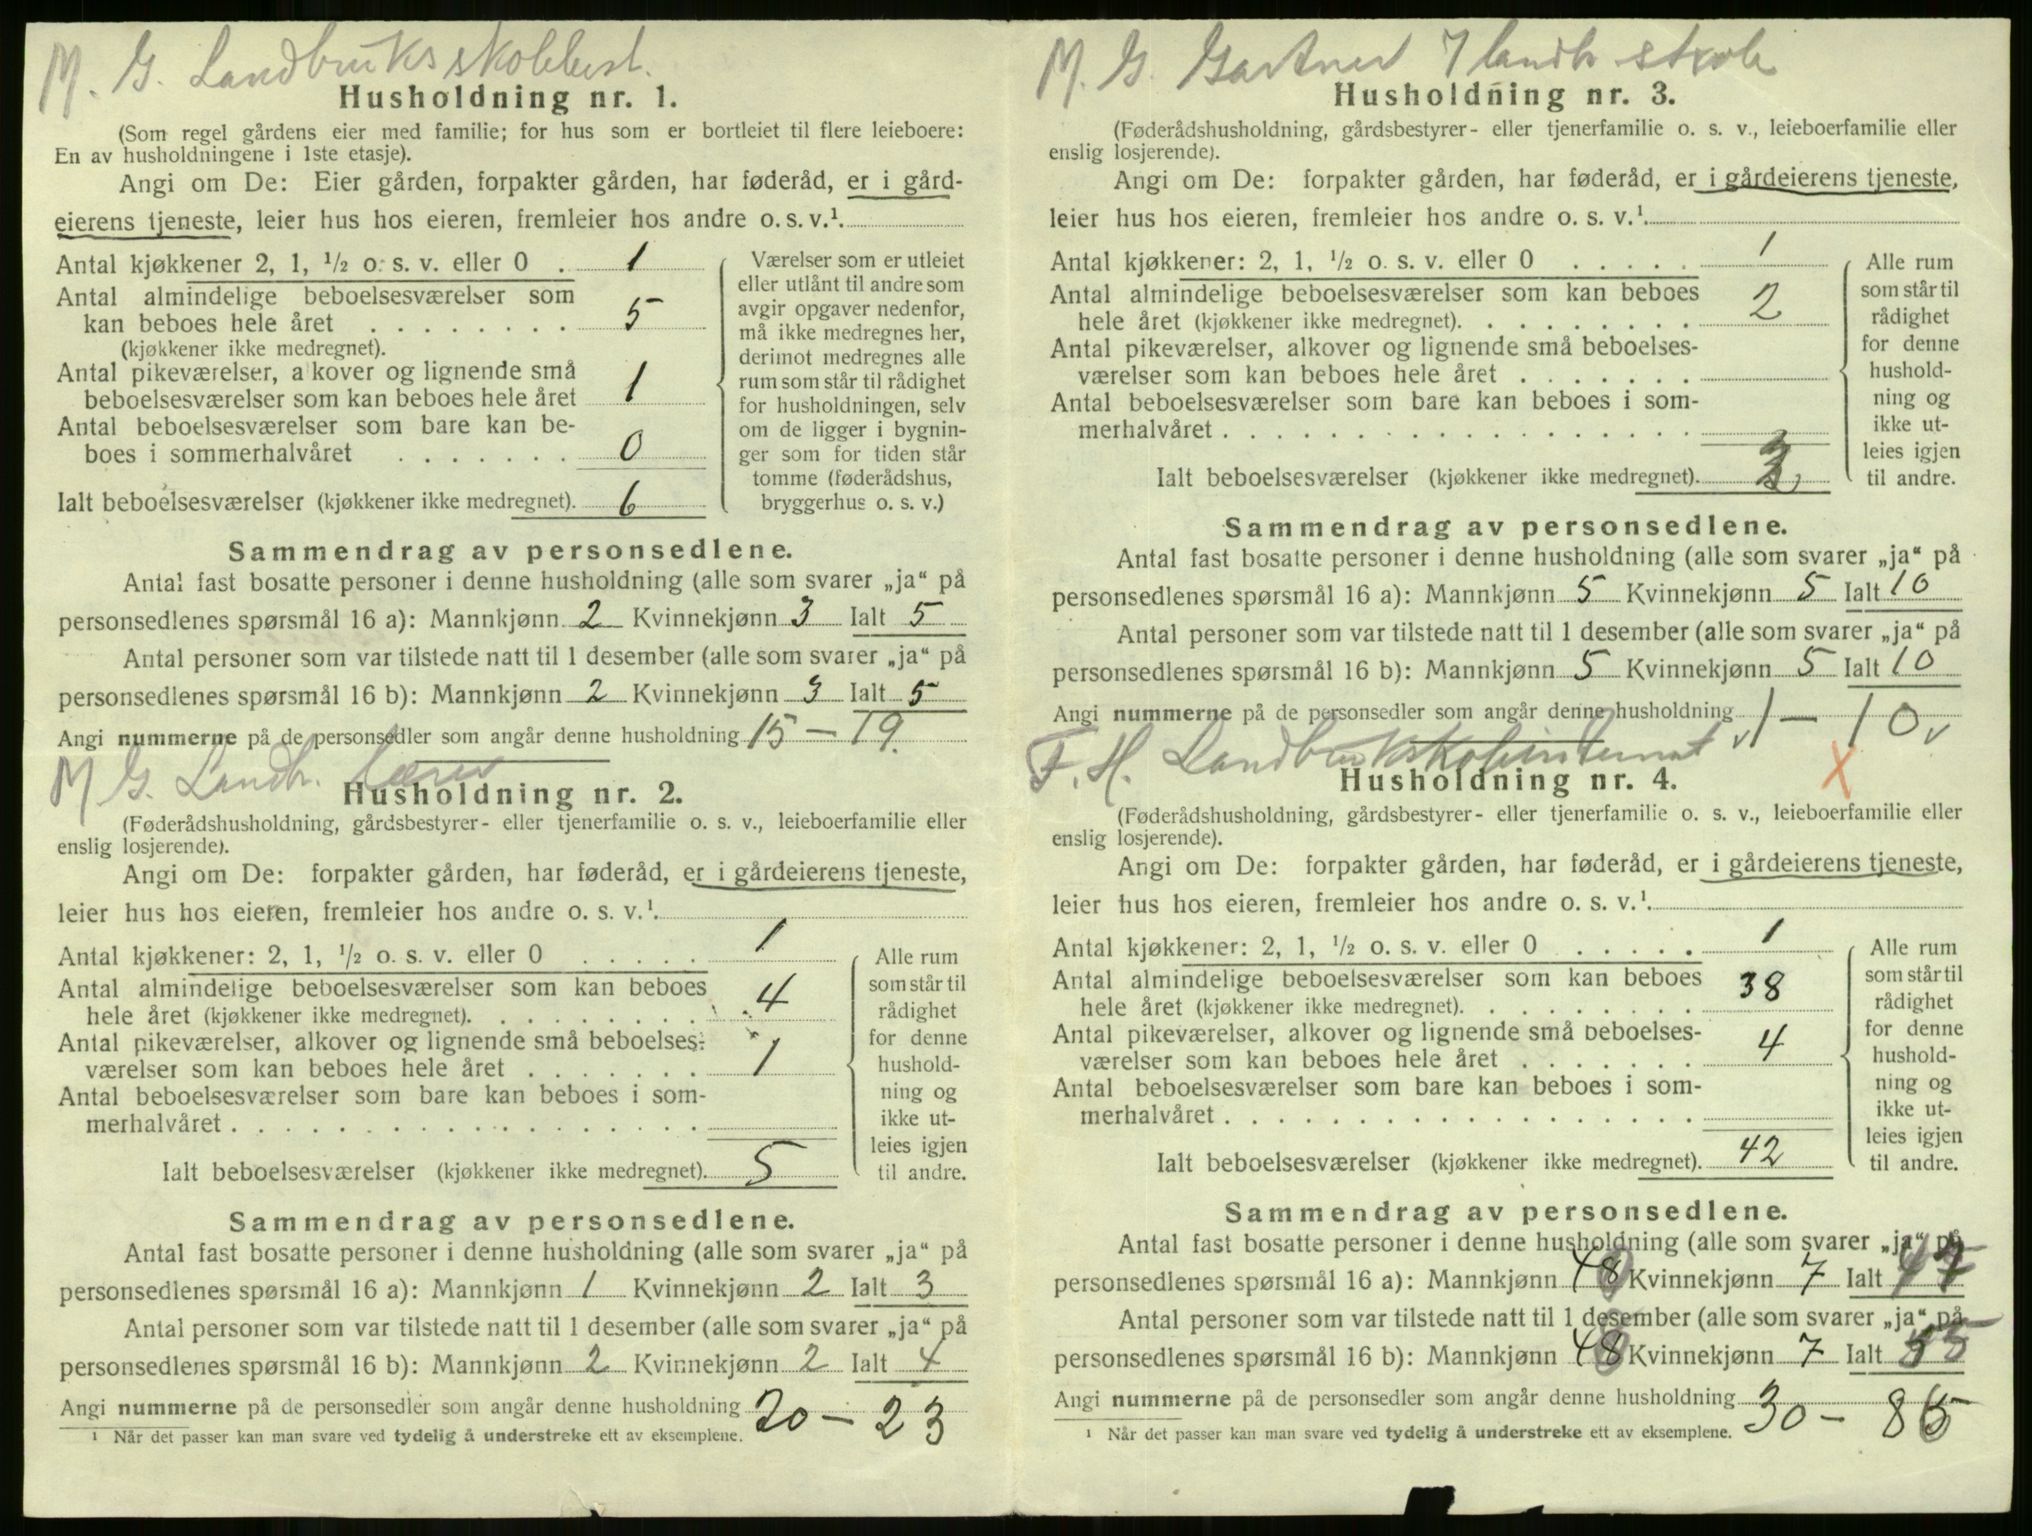 M. G. Landbruksskolebest.
Husholdning nr. 1.
(Som regel gårdens eier med familie; for hus som er bortleiet til flere leieboere:
En av husholdningene i 1ste etasje).
Angi om De: Eier gården, forpakter gården, har føderåd, er i gård-
eierens tjeneste, leier hus hos eieren, fremleier hos andre o. s. v.¹.
Antal kjøkkener 2, 1, ½ o. s. v. eller 0 . 1
Antal almindelige beboelsesværelser som
kan beboes hele året . . . . . . . . 5
(kjøkkener ikke medregnet).
Antal pikeværelser, alkover og lignende små
beboelsesværelser som kan beboes hele året 1
Antal beboelsesværelser som bare kan be-
boes i sommerhalvåret . . . . . . 0
Ialt beboelsesværelser (kjøkkener ikke medregnet). 6
Værelser som er utleiet
eller utlånt til andre som
avgir opgaver nedenfor,
må ikke medregnes her,
derimot medregnes alle
rum som står til rådighet
for husholdningen, selv
om de ligger i bygnin-
ger som for tiden står
tomme (føderådshus,
bryggerhus o. s. v.)
Sammendrag av personsedlene.
Antal fast bosatte personer i denne husholdning (alle som svarer „ja“ på
personsedlenes spørsmål 16 a): Mannkjønn 2 Kvinnekjønn 3 Ialt 5
Antal personer som var tilstede natt til 1 desember (alle som svarer „ja“ på
personsedlenes spørsmål 16 b): Mannkjønn 2 Kvinnekjønn 3 Ialt 5
Angi nummerne på de personsedler som angår denne husholdning 15 — 19.
M. G. Landbr. Lærer
Husholdning nr. 2.
(Føderådshusholdning, gårdsbestyrer- eller tjenerfamilie o. s. v., leieboerfamilie eller
enslig losjerende).
Angi om De: forpakter gården, har føderåd, er i gårdeierens tjeneste,
leier hus hos eieren, fremleier hos andre o. s. v.¹.
Antal kjøkkener: 2, 1, ½ o. s. v. eller 0 . . . . . 1
Antal almindelige beboelsesværelser som kan beboes
hele året (kjøkkener ikke medregnet). . . . . . . . 4
Antal pikeværelser, alkover og lignende små beboelses-
værelser som kan beboes hele året . . . . . . . 1
Antal beboelsesværelser som bare kan beboes i som-
merhalvåret . . . . . . . . . . . . . . . . . .
Ialt beboelsesværelser (kjøkkener ikke medregnet). 5
Alle rum
som står til
rådighet
for denne
hushold-
ning og
ikke ut-
leies igjen
til andre.
Sammendrag av personsedlene.
Antal fast bosatte personer i denne husholdning (alle som svarer „ja“ på
personsedlenes spørsmål 16 a): Mannkjønn 1 Kvinnekjønn 2 Ialt 3
Antal personer som var tilstede natt til 1 desember (alle som svarer „ja“ på
personsedlenes spørsmål 16 b): Mannkjønn 2 Kvinnekjønn 2 Ialt 4
Angi nummerne på de personsedler som angår denne husholdning 20 — 23
¹ Når det passer kan man svare ved tydelig å understreke ett av eksemplene.
M. G. Gartner landbr. skole
Husholdning nr. 3.
(Føderådshusholdning, gårdsbestyrer- eller tjenerfamilie o. s. v., leieboerfamilie eller
enslig losjerende).
Angi om De: forpakter gården, har føderåd, er i gårdeierens tjeneste,
leier hus hos eieren, fremleier hos andre o. s. v.¹.
Antal kjøkkener: 2, 1, ½ o. s. v. eller 0 . . . . . 1
Antal almindelige beboelsesværelser som kan beboes
hele året (kjøkkener ikke medregnet). . . . . . . . 2
Antal pikeværelser, alkover og lignende små beboelses-
værelser som kan beboes hele året . . . . . . .
Antal beboelsesværelser som bare kan beboes i som-
merhalvåret . . . . . . . . . . . . . . . . . .
Ialt beboelsesværelser (kjøkkener ikke medregnet).
Alle rum
som står til
rådighet
for denne
hushold-
ning og
ikke ut-
leies igjen
til andre.
Sammendrag av personsedlene.
Antal fast bosatte personer i denne husholdning (alle som svarer „ja“ på
personsedlenes spørsmål 16 a): Mannkjønn 5 Kvinnekjønn 5 Ialt 10
Antal personer som var tilstede natt til 1 desember (alle som svarer „ja“ på
personsedlenes spørsmål 16 b): Mannkjønn 5 Kvinnekjønn 5 Ialt 10
Angi nummerne på de personsedler som angår denne husholdning 1 — 10
F. H. Landbruksskoleinternat X
Husholdning nr. 4.
(Føderådshusholdning, gårdsbestyrer- eller tjenerfamilie o. s. v., leieboerfamilie eller
enslig losjerende).
Angi om De: forpakter gården, har føderåd, er i gårdeierens tjeneste,
leier hus hos eieren, fremleier hos andre o. s. v.¹.
Antal kjøkkener: 2, 1, ½ o. s. v. eller 0 . . . . . 1
Antal almindelige beboelsesværelser som kan beboes
hele året (kjøkkener ikke medregnet). . . . . . . . 38
Antal pikeværelser, alkover og lignende små beboelses-
værelser som kan beboes hele året . . . . . . . 4
Antal beboelsesværelser som bare kan beboes i som-
merhalvåret . . . . . . . . . . . . . . . . . .
Ialt beboelsesværelser (kjøkkener ikke medregnet). 42
Alle rum
som står til
rådighet
for denne
hushold-
ning og
ikke ut-
leies igjen
til andre.
Sammendrag av personsedlene.
Antal fast bosatte personer i denne husholdning (alle som svarer „ja“ på
personsedlenes spørsmål 16 a): Mannkjønn Kvinnekjønn 7 Ialt
Antal personer som var tilstede natt til 1 desember (alle som svarer „ja“ på
personsedlenes spørsmål 16 b): Mannkjønn 48 Kvinnekjønn 7 Ialt 55
Angi nummerne på de personsedler som angår denne husholdning 30 —
¹ Når det passer kan man svare ved tydelig å understreke ett av eksemplene.